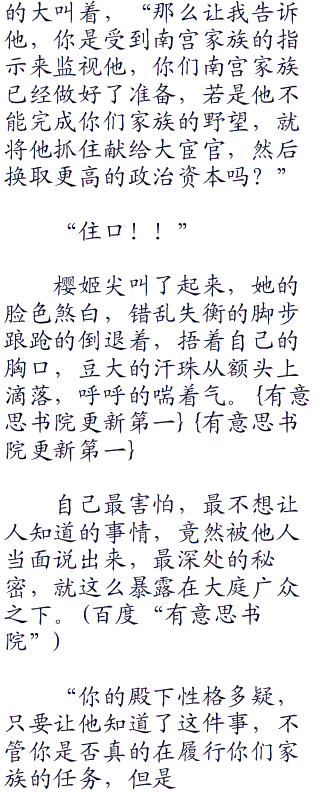 的大叫着，“那么让我告诉
他，你是受到南宫家族的指
示来监视他，你们南宫家族
已经做好了准备，若是他不
能完成你们家族的野望，就
将他抓住献给大宦官，然后
换取更高的政治资本吗？”
“住口！！”
樱姬尖叫了起来，她的
脸色煞白，错乱失衡的脚步
踉跄的倒退着，捂着自己的
胸口，豆大的汗珠从额头上
滴落，呼呼的喘着气。{有意
思书院更新第一}{有意思书
院更新第一}
自己最害怕，最不想让
人知道的事情，竟然被他人
当面说出来，最深处的秘
密，就这么暴露在大庭广众
之下。(百度“有意思书
院”)
“你的殿下性格多疑，
只要让他知道了这件事，不
管你是否真的在履行你们家
族的任务，但是